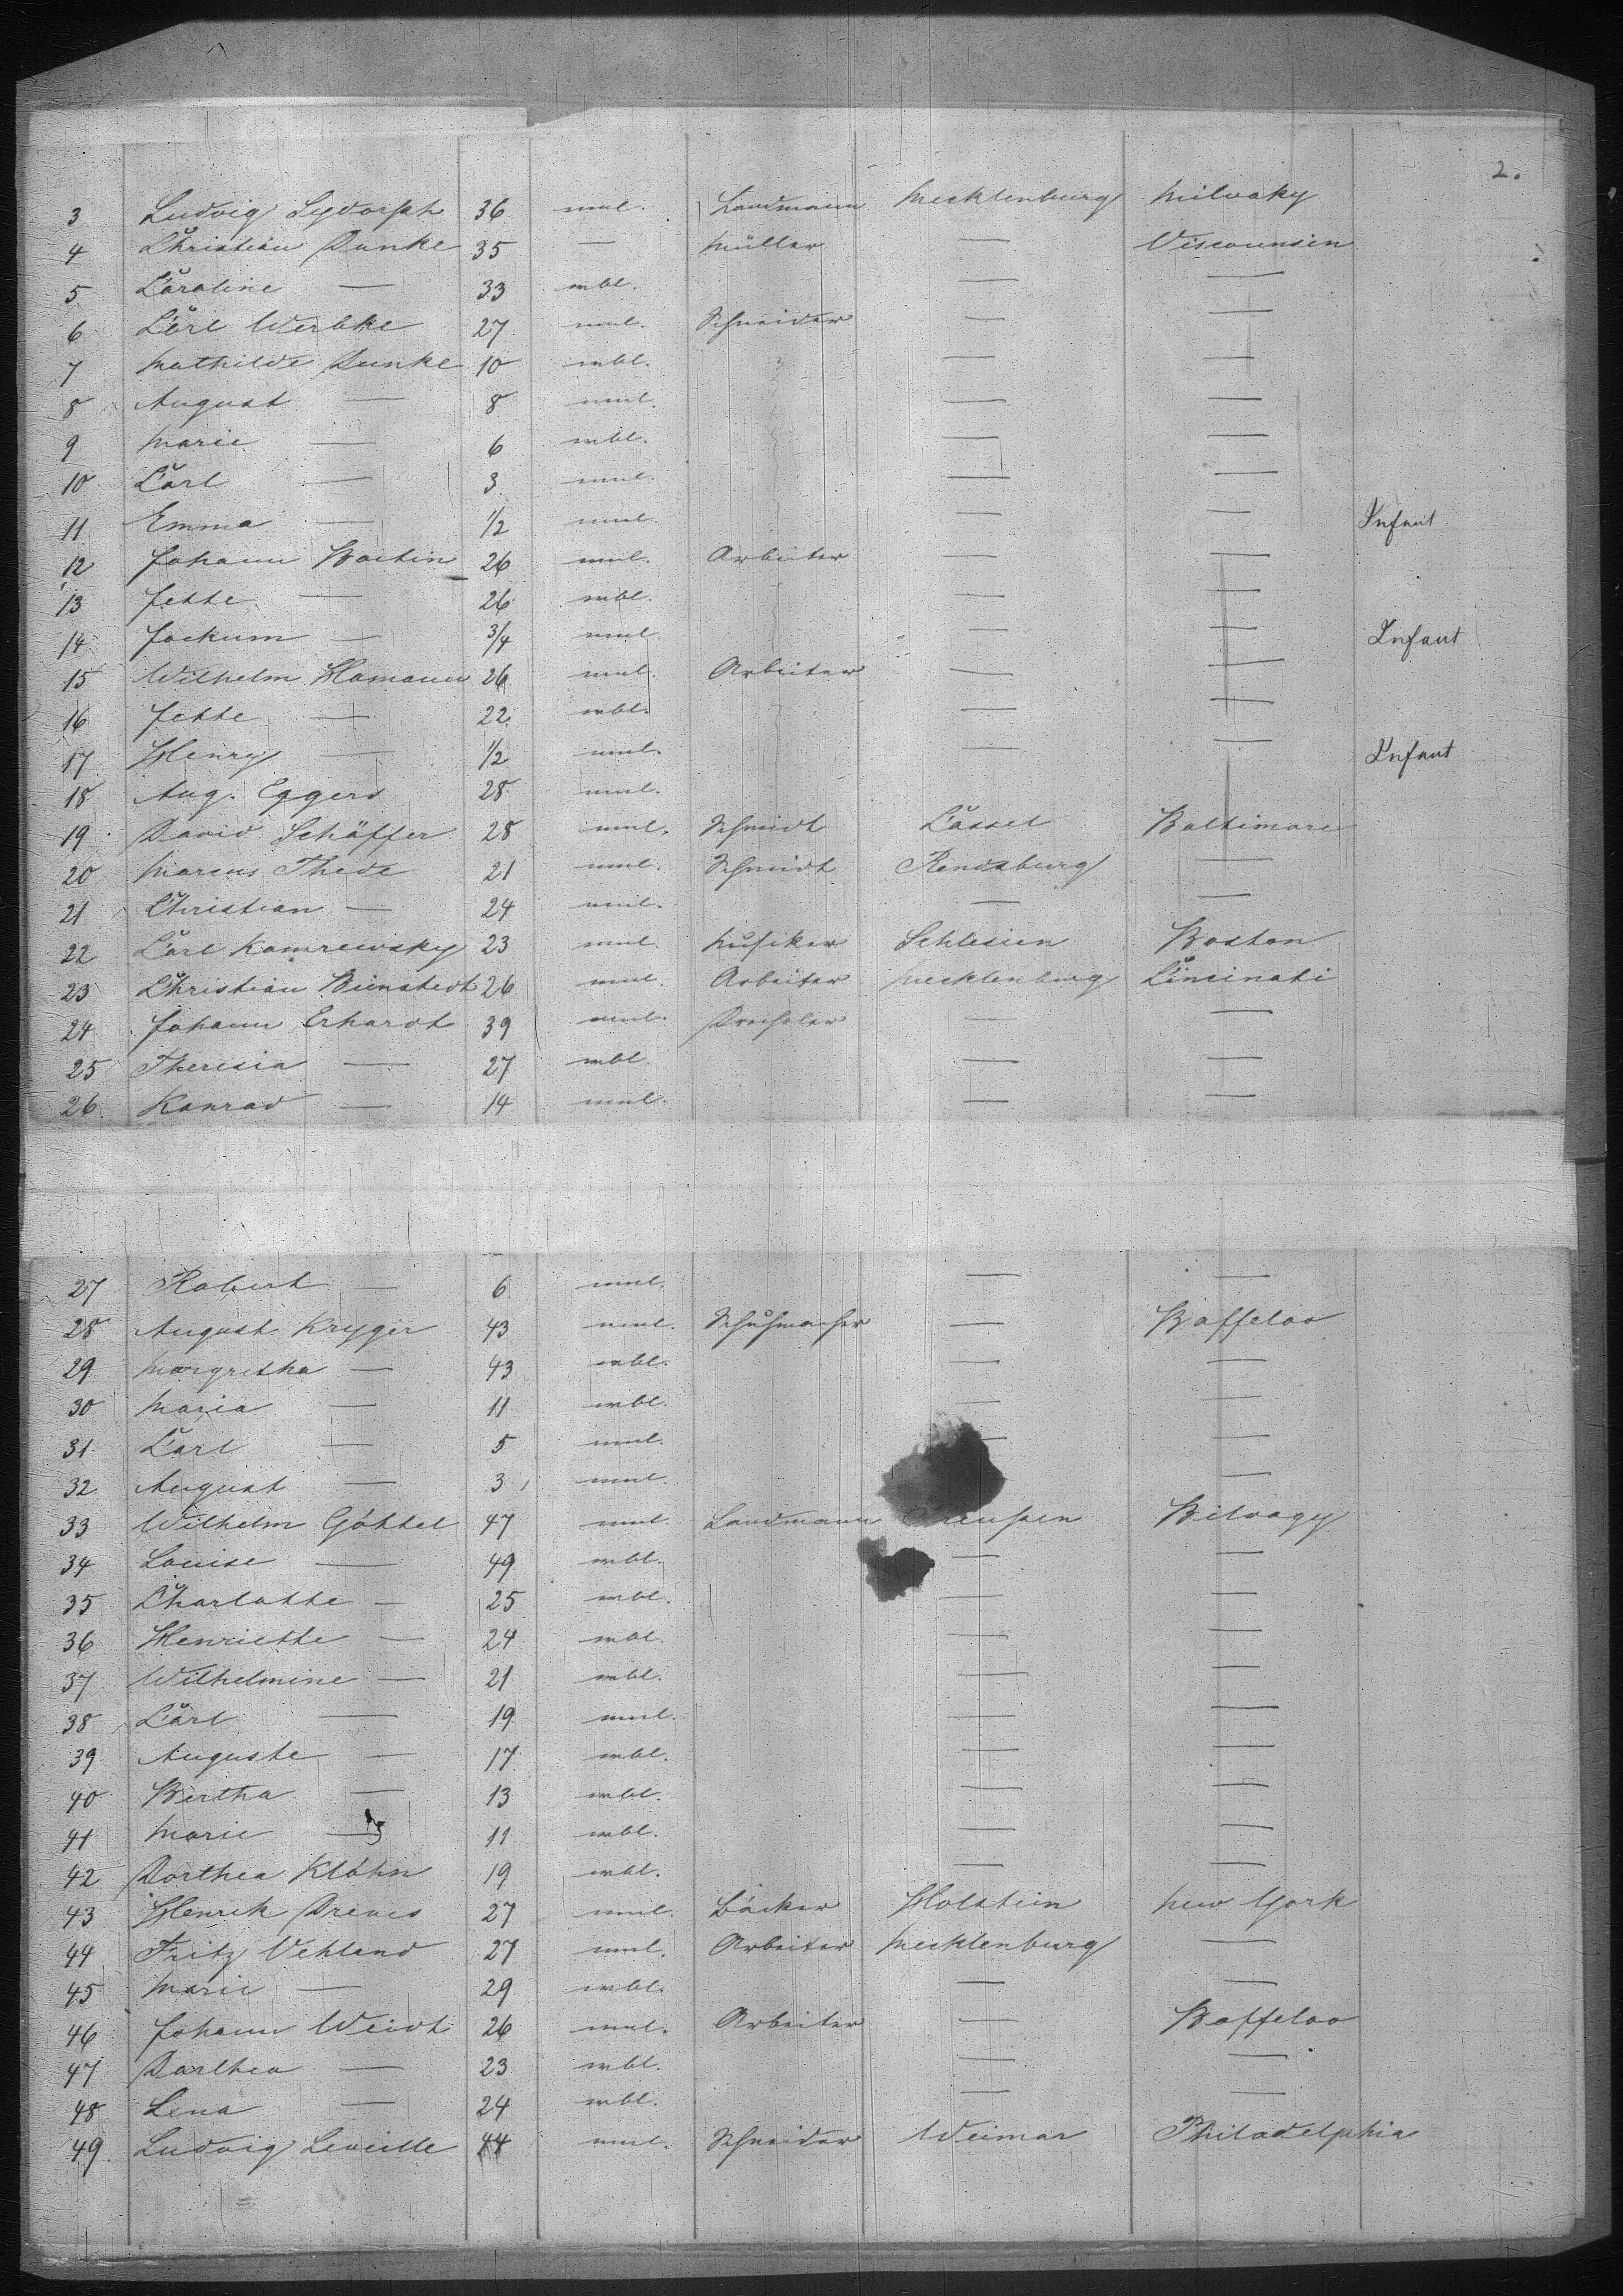 2.
3 Ludvig Sydorph 36 mnl. Landmann Mecklenburg Milvaky
4 Christian Dunke 35 — Müller — Viscounsin
5 Caroline — 33 wbl. — —
6 Carl Werbke 27 mnl. Schneider — —
7 Mathilde Dunke 10 wbl. — —
8 August — 8 mnl. — —
9 Marie — 6 wbl. — —
10 Carl — 3 mnl. — —
11 Emma — 1/2 mnl. — — Infant
12 Johann Boitin 26 mnl. Arbeiter — —
13 Jette — 26 wbl. — —
14 Jockum — 3/4 mnl — — Infant
15 Wilhelm Hamann 26 mnl. Arbeiter — —
16 Jette — 22 wbl. — —
17 Henry — 1/2 mnl. — — Infant
18 Aug. Eggers 28 mnl.
19 David Schäffer 28 mnl. Schmidt Cassel Baltimore
20 Marcus Thede 21 mnl. Schmidt Rendsburg —
21 Christian — 24 mnl. — —
22 Carl Kamrewsky 23 mnl. Musiker Schlesien Boston
23 Christian Bünstedt 26 mnl. Arbeiter Mecklenburg Cincinati
24 Johann Erhardt 39 mnl. Drechsler — —
25 Theresia — 27 wbl. — —
26 Konrad — 14 mnl. — —
27 Robert — 6 mnl. — —
28 August Kryger 43 mnl. Schuhmacher — Boffeloo
29 Margretha — 43 wbl. — —
30 Maria — 11 wbl. — —
31 Carl — 5 mnl. — —
32 August — 3 mnl —
33 Wilhelm Göttel 47 mnl. Landmann Preußen Bilvagy
34 Louise — 49 wbl. — —
35 Charlotte — 25 wbl. — —
36 Henriette — 24 wbl. — —
37 Wilhelmine — 21 wbl. — —
38 Carl — 19 mnl. — —
39 Auguste — 17 wbl. — —
40 Bertha — 13 wbl. — —
41 Marie — 11 wbl. — —
42 Dorthea Klöhn 19 wbl. — —
43 Henrik Drives 27 mnl. Bäcker Holstein New York
44 Fritz Vehland 27 mnl. Arbeiter Mecklenburg —
45 Marie — 29 wbl. — —
46 Johann Weidt 26 mnl. Arbeiter — Boffeloo
47 Dorthea — 23 wbl. — —
48 Lena — 24 wbl. — —
49 Ludvig Leveille 44 mnl. Schneider Weimar Philadelphia